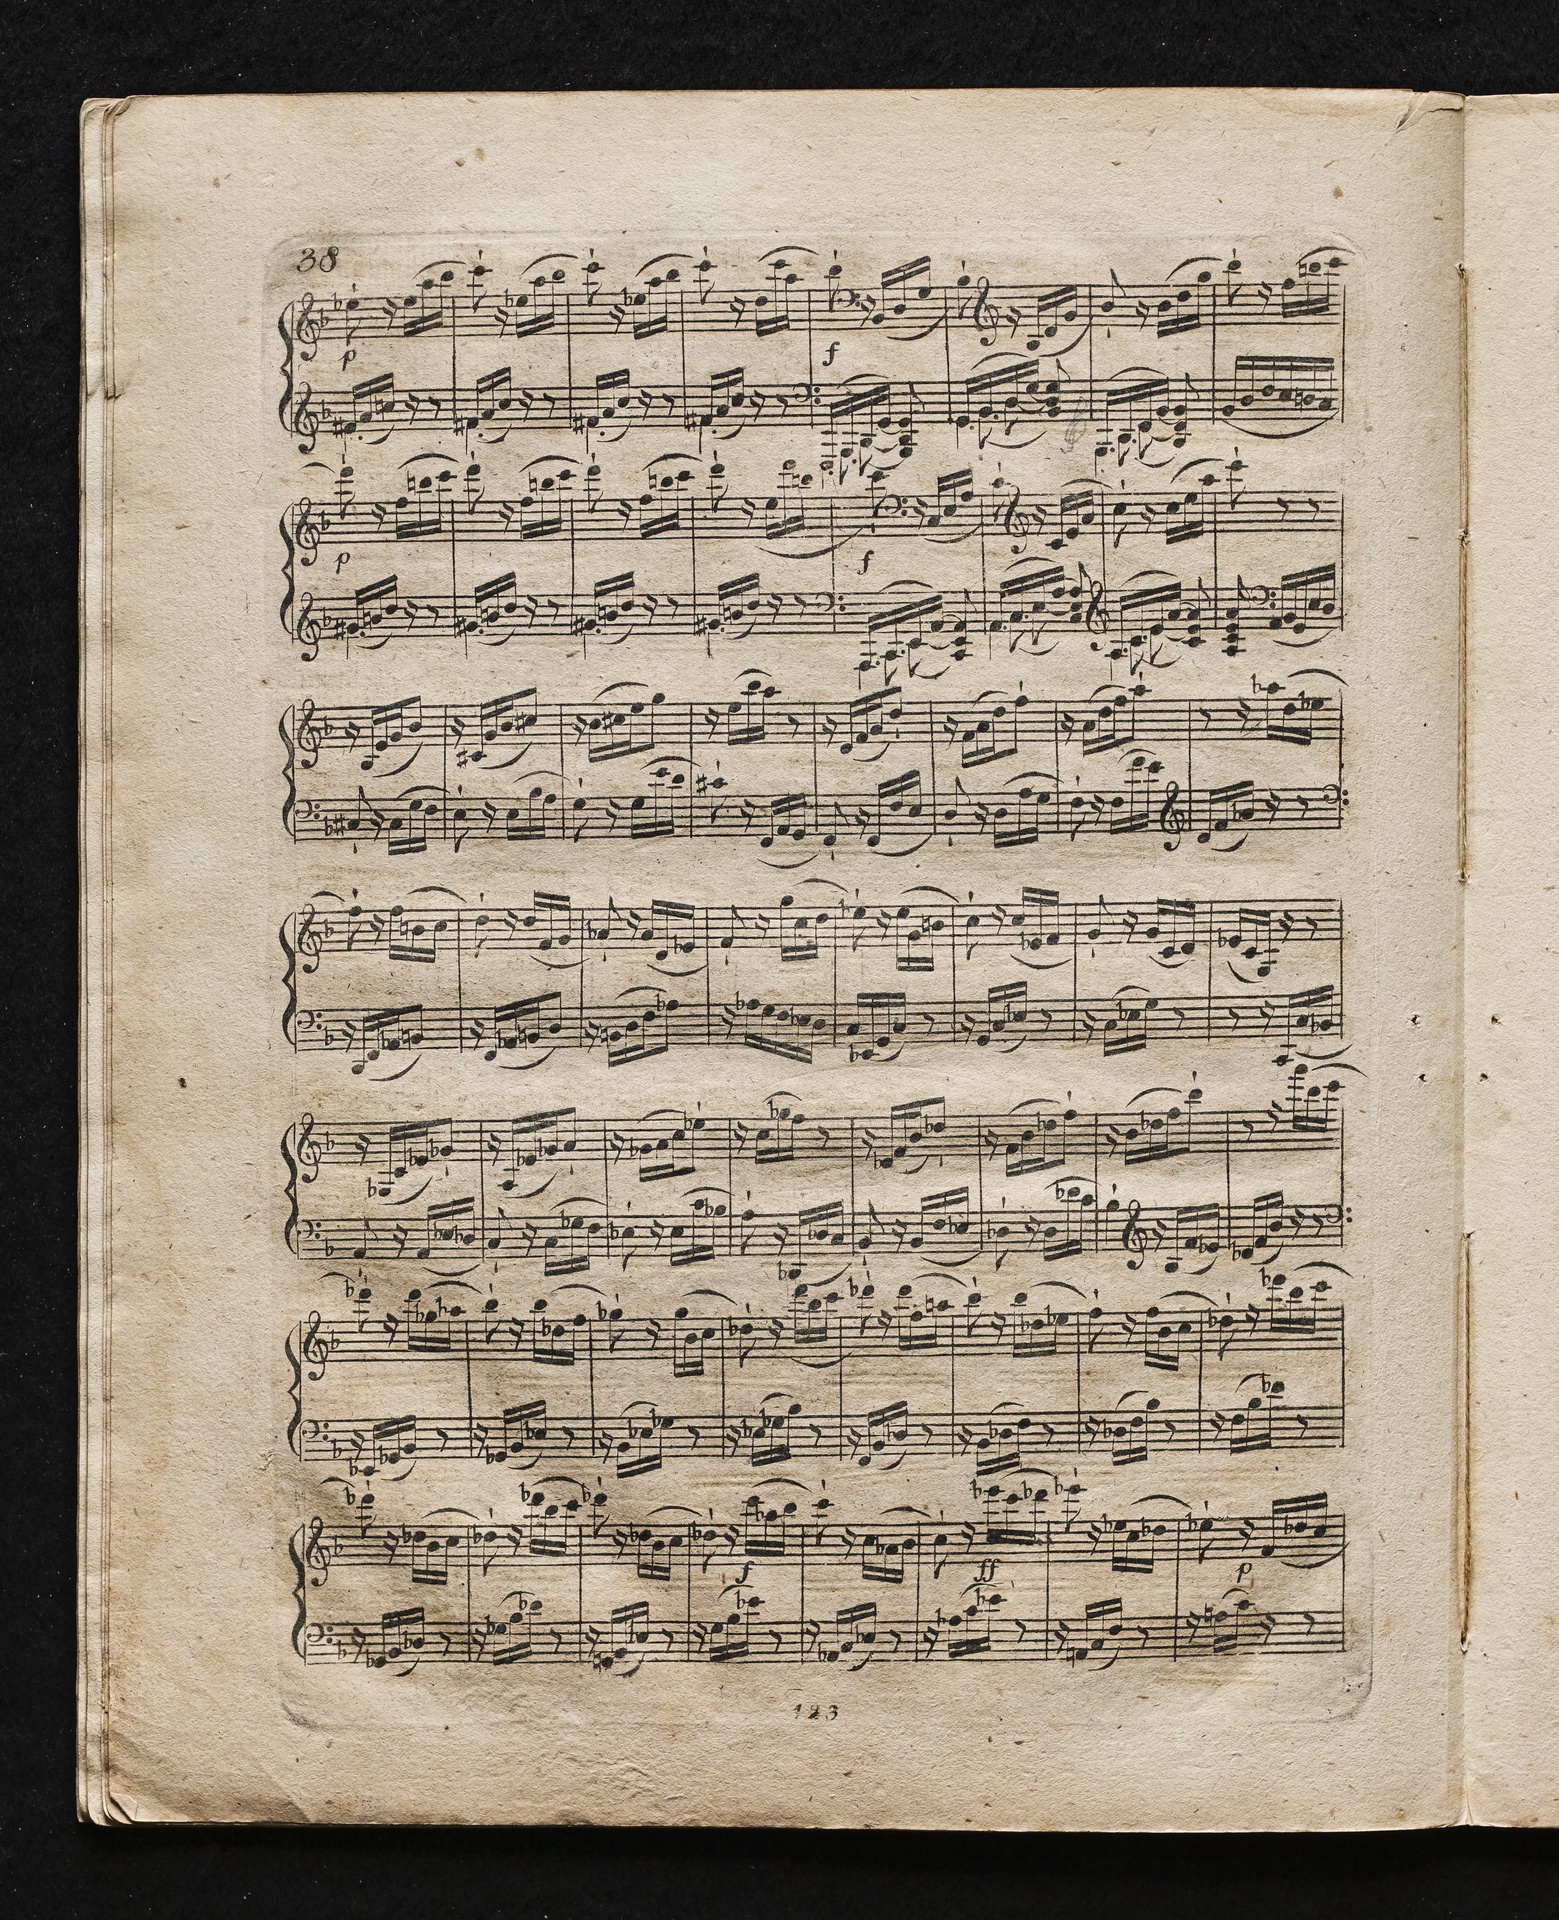 38
p f
p f
f ff p
123